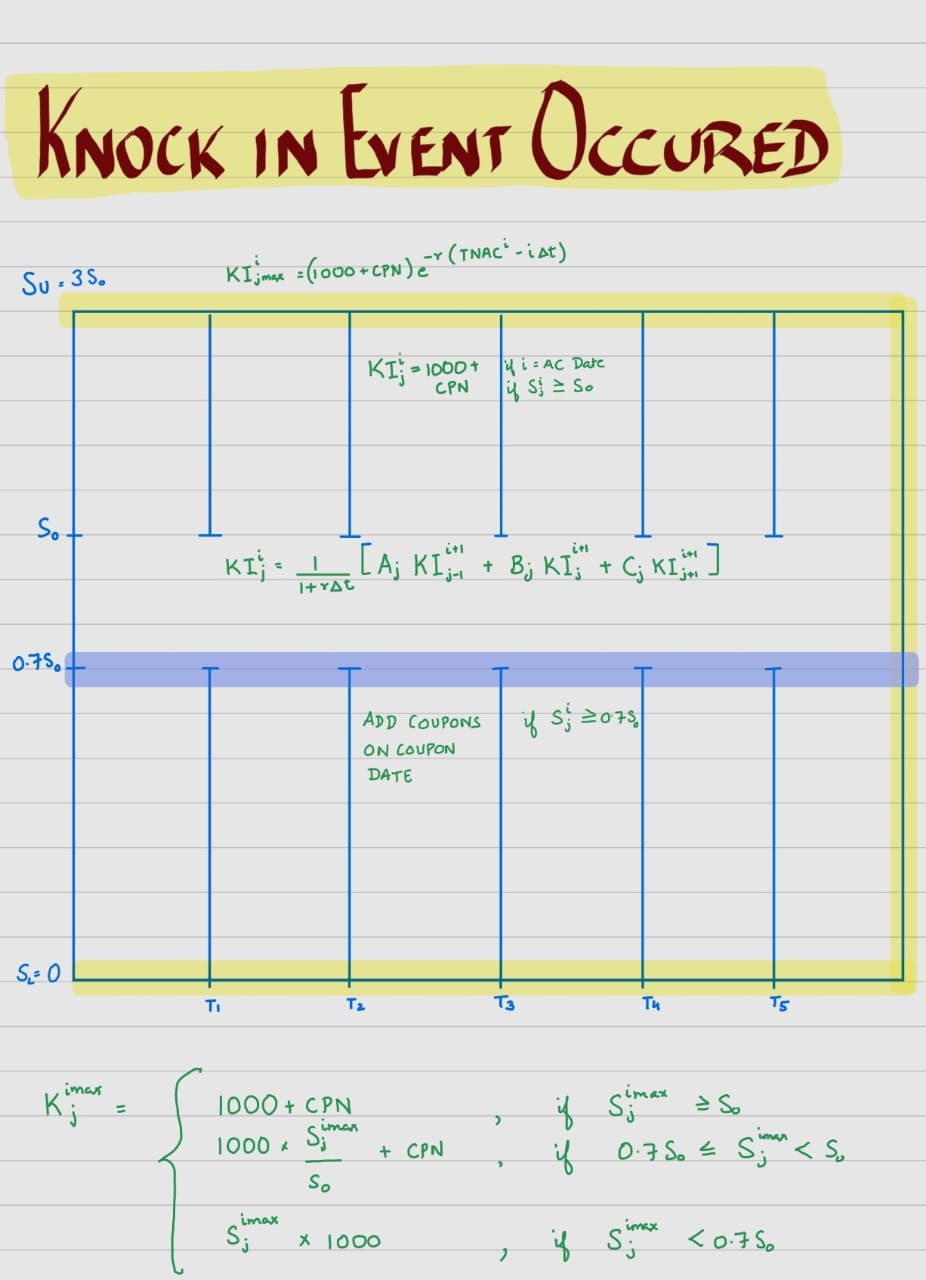 KNOCK IN EVENT OCCURED
KI^i_jmax = (1000 + CPN) e^-r(TNAC^i - iΔt)
Su = 3S₀
KI^i_j = 1000 + if i = AC Date
CPN if S^i_j ≥ S₀
S₀
KI^i_j = 1/(1+rΔt) [A_j KI^i+1_j-1 + B_j KI^i+1_j + C_j KI^i+1_j+1]
0.7S₀
ADD COUPONS if S^i_j ≥ 0.7S₀
ON COUPON
DATE
S_L = 0
T₁ T₂ T₃ T₄ T₅
K^imax_j = {
1000 + CPN , if S^imax_j ≥ S₀
1000 × S^imax_j / S₀ + CPN , if 0.7S₀ ≤ S^imax_j < S₀
S^imax_j × 1000 , if S^imax_j < 0.7S₀